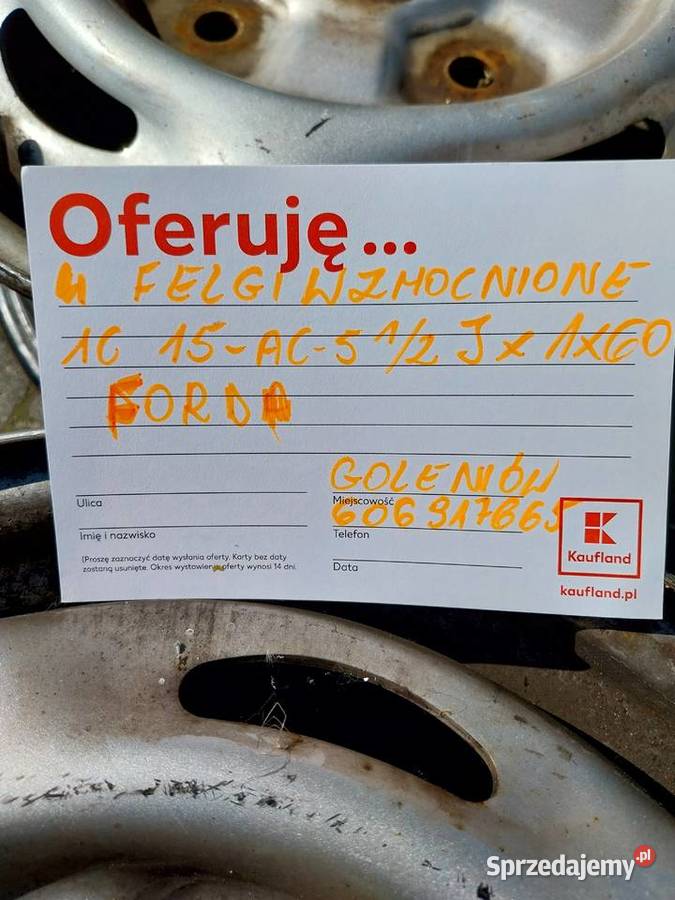 Oferuję...
4 FELGI WZMOCNIONE
1C 15-AC-5 1/2 J x 1x60
FORDA
GOLENIÓW
Ulica
Miejscowość
606917665
Imię i nazwisko
Telefon
(Proszę zaznaczyć datę wysłania oferty. Karty bez daty
zostaną usunięte. Okres wystawienia oferty wynosi 14 dni.
Data
Kaufland
kaufland.pl
Sprzedajemy.pl